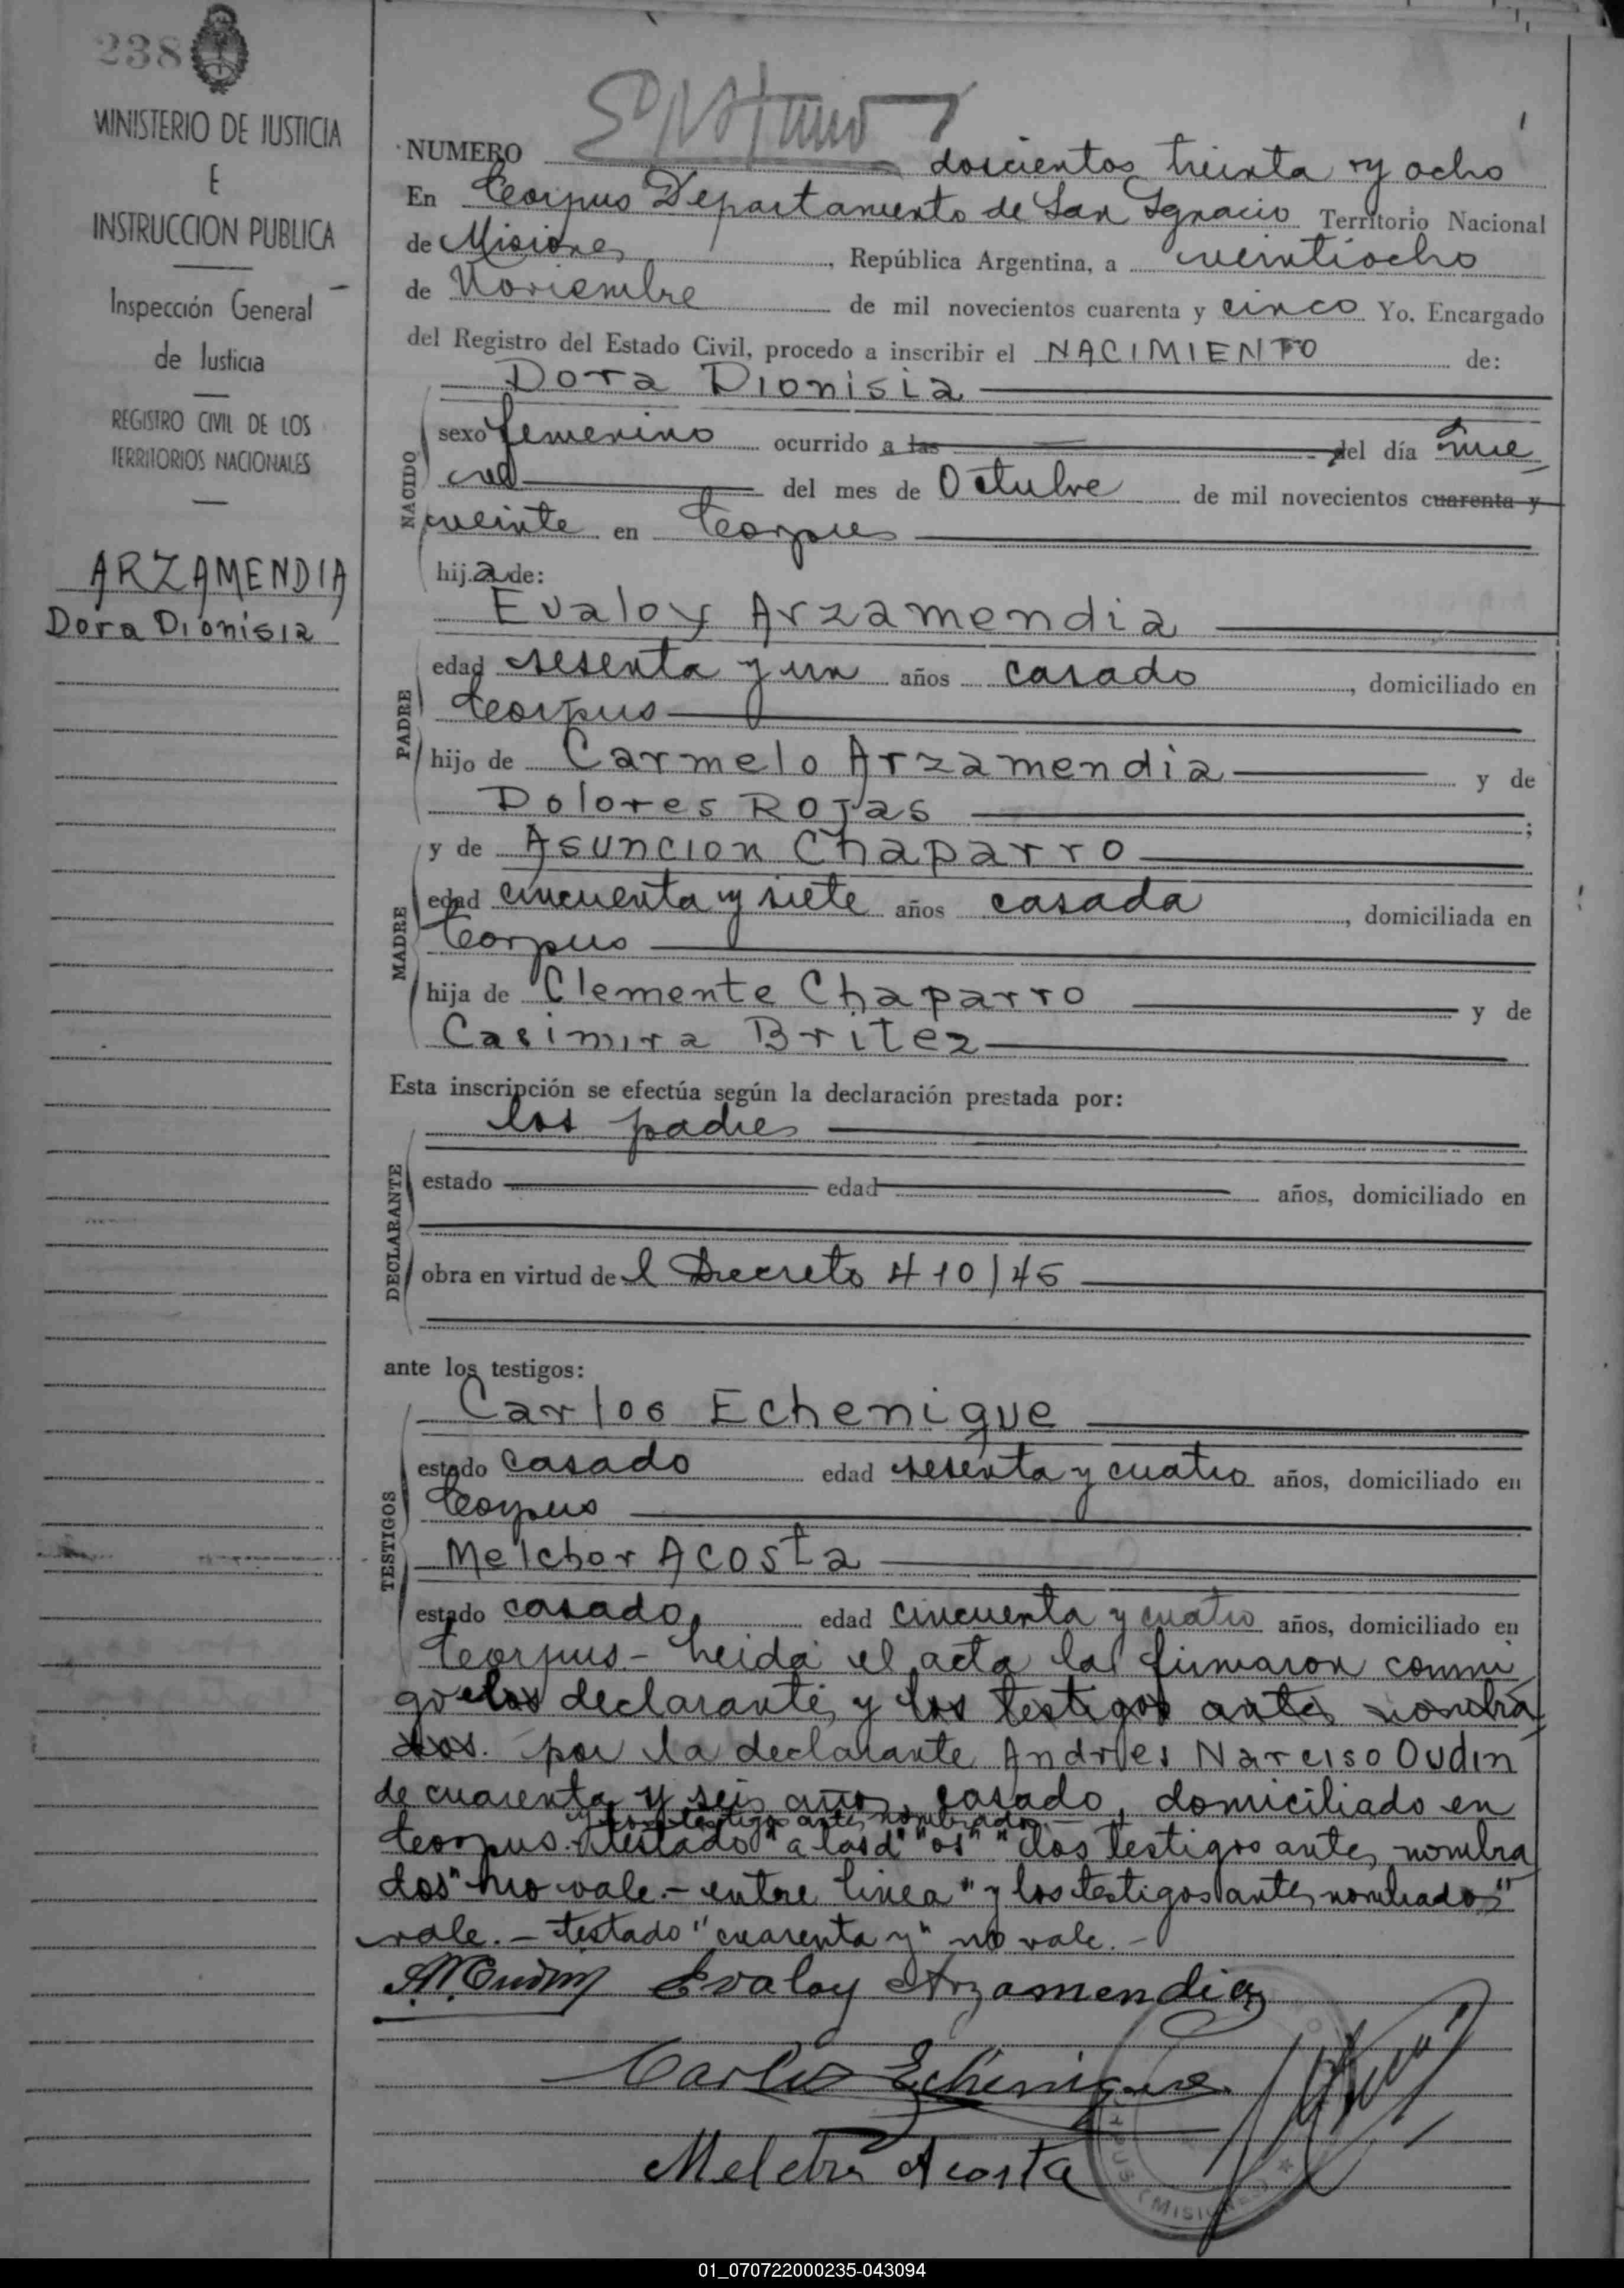 238
MINISTERIO DE JUSTICIA
E
INSTRUCCION PUBLICA
Inspección General
de Justicia
REGISTRO CIVIL DE LOS
TERRITORIOS NACIONALES
ARZAMENDIA
Dora Dionisia
NUMERO doscientos treinta y ocho
En Corpus Departamento de San Ignacio Territorio Nacional
de Misiones, República Argentina, a veintiocho
de Noviembre de mil novecientos cuarenta y cinco Yo, Encargado
del Registro del Estado Civil, procedo a inscribir el NACIMIENTO de:
Dora Dionisia
NACIDO
sexo femenino ocurrido a las del día nue
ve del mes de Octubre de mil novecientos cuarenta y
veinte en Corpus
hija de:
Evaloy Arzamendia
PADRE
edad sesenta y un años casado, domiciliado en
Corpus
hijo de Carmelo Arzamendia y de
Dolores Rojas;
y de Asuncion Chaparro
MADRE
edad cincuenta y siete años casada, domiciliada en
Corpus
hija de Clemente Chaparro y de
Casimira Britez
Esta inscripción se efectúa según la declaración prestada por:
los padres
DECLARANTE
estado edad años, domiciliado en
obra en virtud del Decreto 410/45
ante los testigos:
Carlos Echenique
TESTIGOS
estado casado edad sesenta y cuatro años, domiciliado en
Corpus
Melchor Acosta
estado casado, edad cincuenta y cuatro años, domiciliado en
Corpus.- Leida el acta la firmaron conmi
go el declarante y los testigos antes nombra
dos. por la declarante Andres Narciso Oudin
de cuarenta y seis años, casado, domiciliado en
y los testigos antes nombrados.-
Corpus. testado "a las d" "os" "los testigos antes nombra
dos" no vale.- entre linea "y los testigos antes nombrados"
vale.- testado "cuarenta y" no vale.-
A. N. Oudin Evaloy Arzamendia
Carlos Echenique
Melchor Acosta
(MISIONES)
01_070722000235-043094